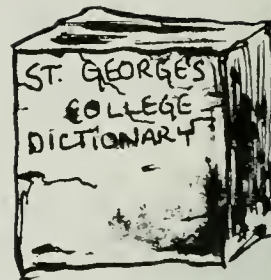 ST. GEORGES
COLLEGE
DICTIONARY